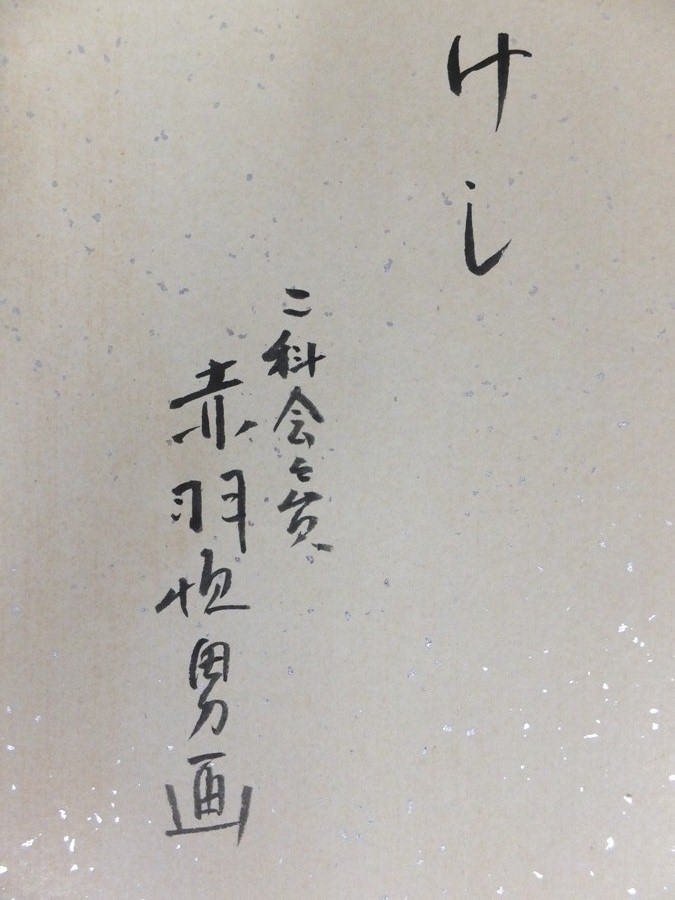 けし
二科会々員
赤羽恒男画